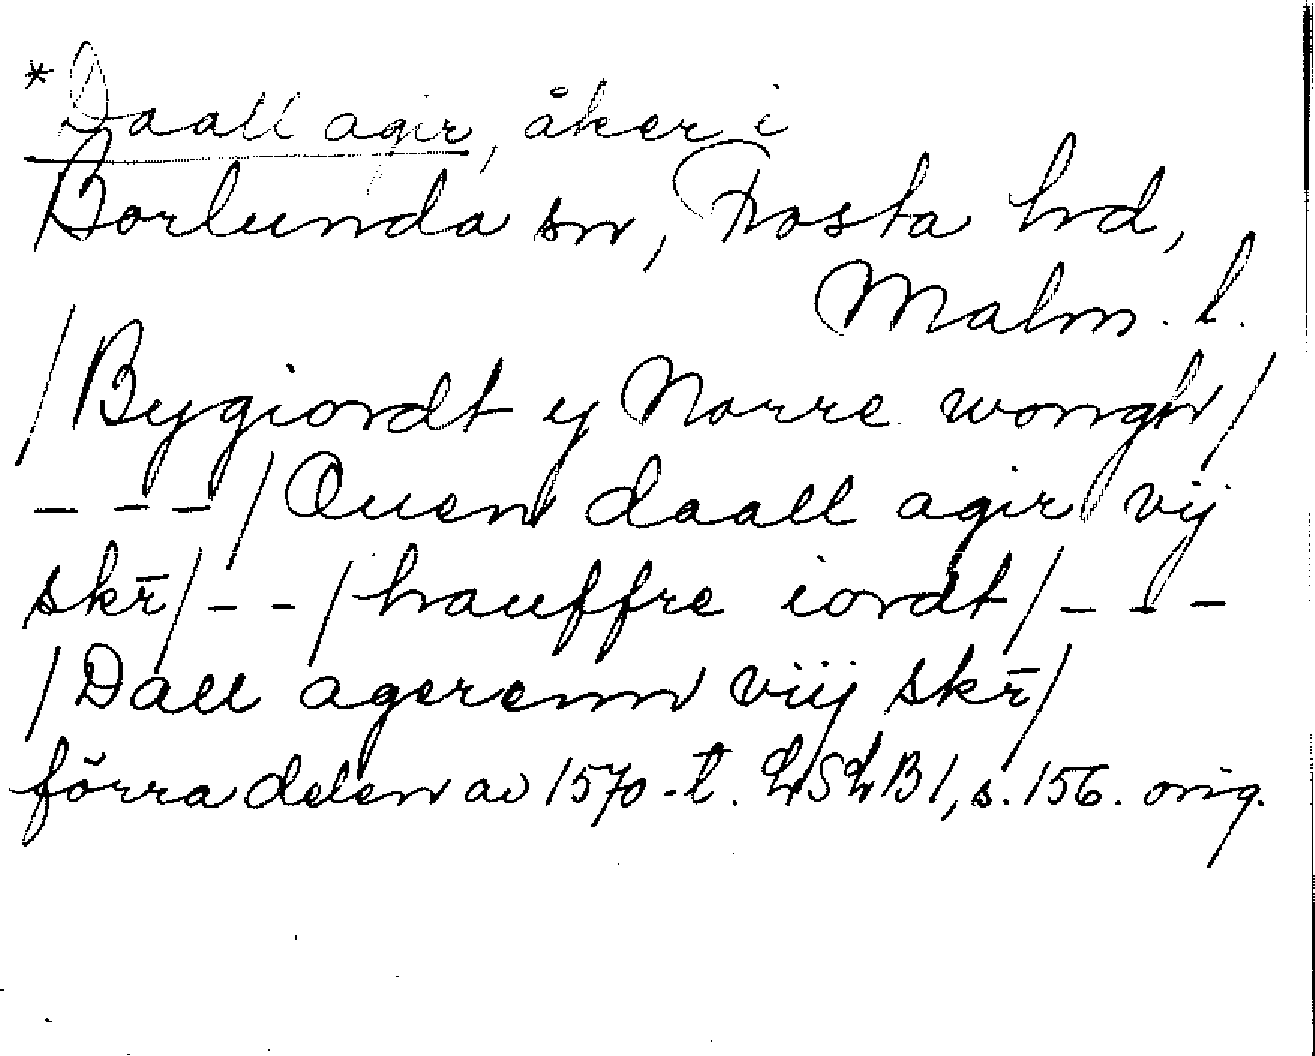 *Daall agir, åker i
Borlunda sn, Frosta hd,
Malm. l.
/Bygiordt y Norre wongh/
---/Ouen daall agir vij
skr̄/--/hauffre iordt/---
/Dall agerenn viij skr̄/
förra delen av 1570-t. LSLB1, s. 156. orig.